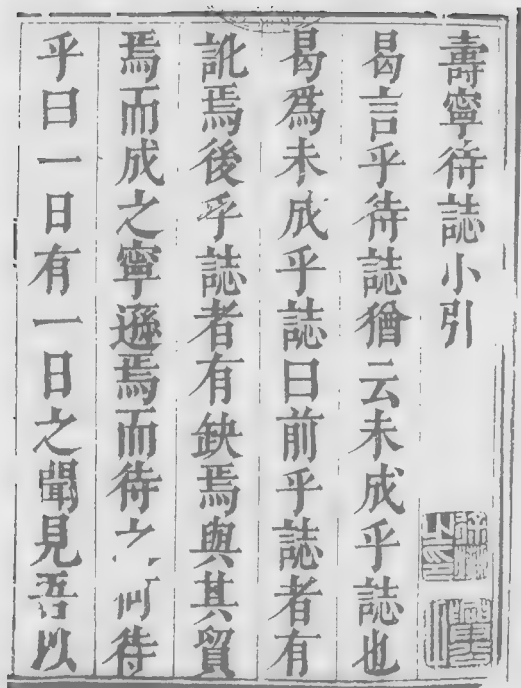 壽寧待誌小引
曷言乎待誌猶云未成乎誌也
曷爲未成乎誌曰前乎誌者有
訛焉後乎誌者有缺焉與其貿
焉而成之寧遜焉而待之何待
乎曰一日有一日之聞見吾以